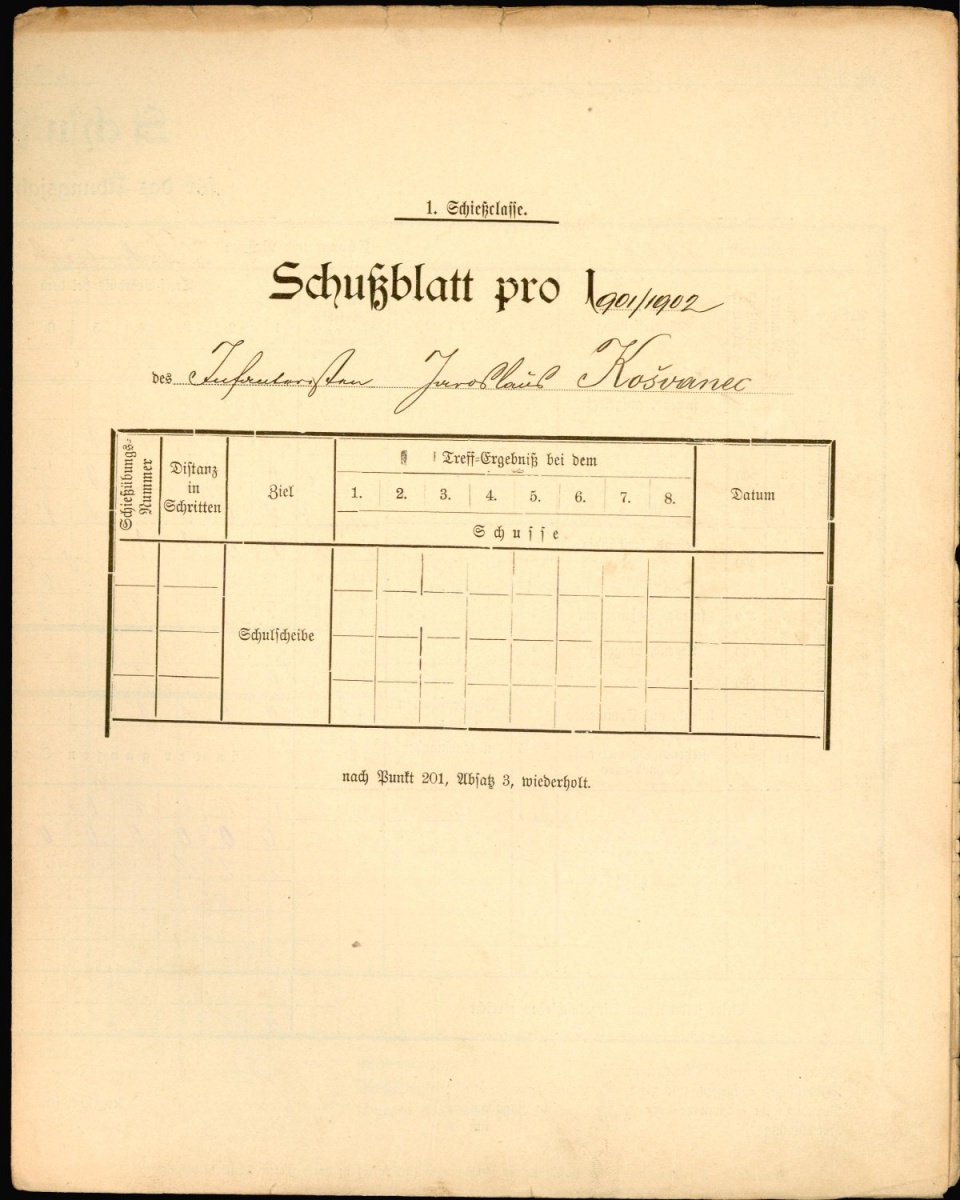 1. Schießclasse.
Schußblatt pro 1901/1902
des Infanteristen Jaroslaus Košvanec
Schießübungs-
Nummer
Distanz
in
Schritten
Ziel
Treff-Ergebniß bei dem
1. 2. 3. 4. 5. 6. 7. 8.
Schusse
Datum
Schulscheibe
nach Punkt 201, Absatz 3, wiederholt.